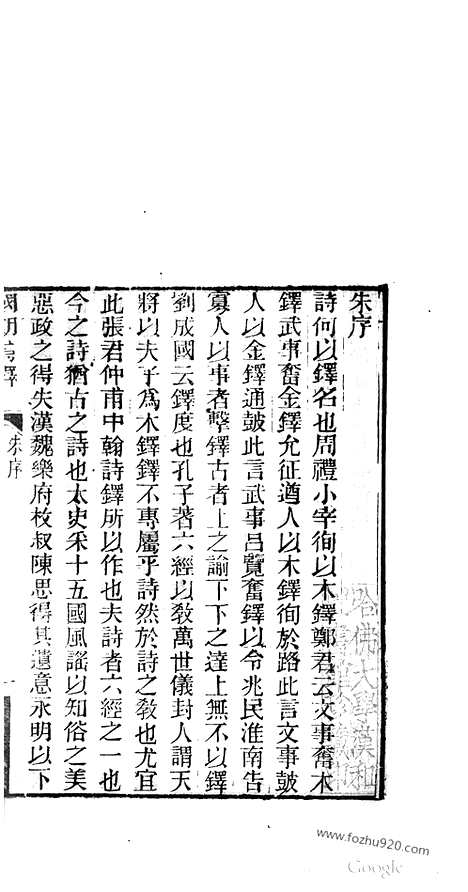 朱序
詩何以鐸名也周禮小宰徇以木鐸鄭君云文事奮木
鐸武事奮金鐸允征遒人以木鐸徇於路此言文事鼓
人以金鐸通鼓此言武事呂覽奮鐸以令兆民淮南告
寡人以事者擊鐸古者上之諭下下之達上無不以鐸
劉成國云鐸度也孔子著六經以敎萬世儀封人謂天
將以夫子爲木鐸鐸不專屬乎詩然於詩之敎也尤宜
此張君仲甫中翰詩鐸所以作也夫詩者六經之一也
今之詩猶古之詩也太史采十五國風謠以知俗之美
惡政之得失漢魏樂府枚叔陳思得其遺意永明以下
國朝詩鐸
朱序
一
哈佛大學漢和
www.fozhu920.com
Google